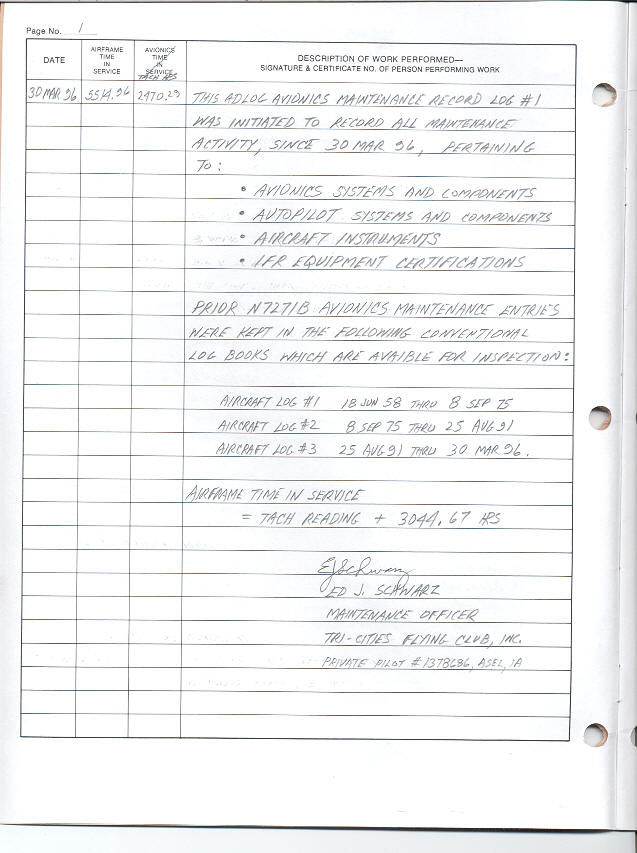 Page No. 1
DATE
AIRFRAME TIME IN SERVICE
AVIONICS TIME IN SERVICE TACH HRS
DESCRIPTION OF WORK PERFORMED—
SIGNATURE & CERTIFICATE NO. OF PERSON PERFORMING WORK
30 MAR 96 5514.96 2470.29 THIS ADLOG AVIONICS MAINTENANCE RECORD LOG #1
WAS INITIATED TO RECORD ALL MAINTENANCE
ACTIVITY, SINCE 30 MAR 96, PERTAINING
TO:
• AVIONICS SYSTEMS AND COMPONENTS
• AUTOPILOT SYSTEMS AND COMPONENTS
• AIRCRAFT INSTRUMENTS
• IFR EQUIPMENT CERTIFICATIONS
PRIOR N7271B AVIONICS MAINTENANCE ENTRIES
WERE KEPT IN THE FOLLOWING CONVENTIONAL
LOG BOOKS WHICH ARE AVAIBLE FOR INSPECTION:
AIRCRAFT LOG #1 18 JUN 58 THRU 8 SEP 75
AIRCRAFT LOG #2 8 SEP 75 THRU 25 AUG 91
AIRCRAFT LOG #3 25 AUG 91 THRU 30 MAR 96.
AIRFRAME TIME IN SERVICE
= TACH READING + 3044.67 HRS
EJSchwarz
ED J. SCHWARZ
MAINTENANCE OFFICER
TRI-CITIES FLYING CLUB, INC.
PRIVATE PILOT #1378686, ASEL, IA